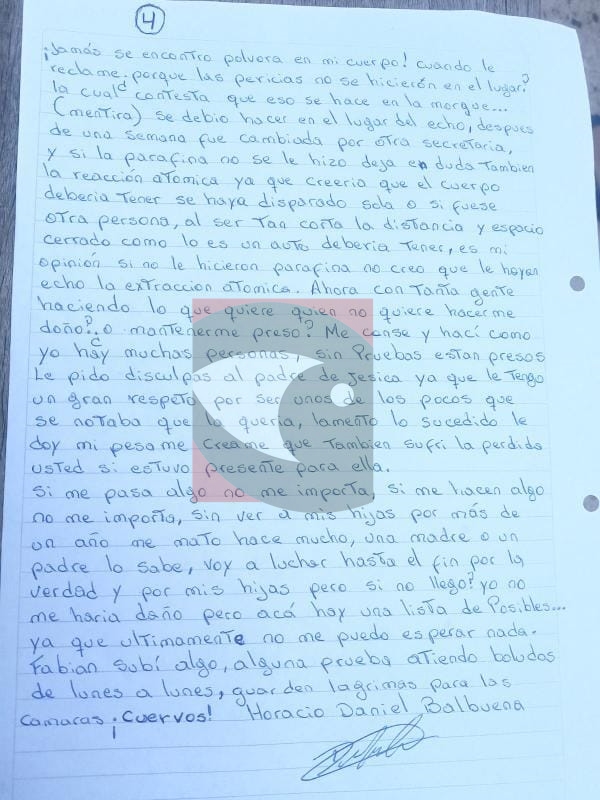 4
¡Jamás se encontro polvora en mi cuerpo! cuando le
reclame. porque las pericias no se hicierón en el lugar?
la cual contesta que eso se hace en la morgue...
(mentira) se debio hacer en el lugar del echo, despues
de una semana fue cambiada por otra secretaria,
y si la parafina no se le hizo deja en duda tambien
la reacción atomica ya que creeria que el cuerpo
deberia tener se haya disparado sola o si fuese
otra persona, al ser tan corta la distancia y espacio
cerrado como lo es un auto deberia tener, es mi
opinión si no le hicieron parafina no creo que le hayan
echo la extracción atomica. Ahora con tanta gente
haciendo lo que quiere quien no quiere hacerme
daño? o mantenerme preso? Me canse y hací como
yo hay muchas personas, sin Pruebas estan presos
Le pido disculpas al padre de Jesica ya que le tengo
un gran respeto por ser unos de los pocos que
se notaba que la queria, lamento lo sucedido le
doy mi pesame creame que tambien sufri la perdida
usted si estuvo presente para ella.
Si me pasa algo no me importa, si me hacen algo
no me importa, sin ver a mis hijas por más de
un año me mato hace mucho, una madre o un
padre lo sabe, voy a luchar hasta el fin por la
verdad y por mis hijas pero si no llego? yo no
me haria daño pero acá hay una lista de Posibles...
ya que ultimamente no me puedo esperar nada.
Fabian subí algo, alguna prueba atiendo boludos
de lunes a lunes, guarden lagrimas para las
camaras ¡Cuervos! Horacio Daniel Balbuena